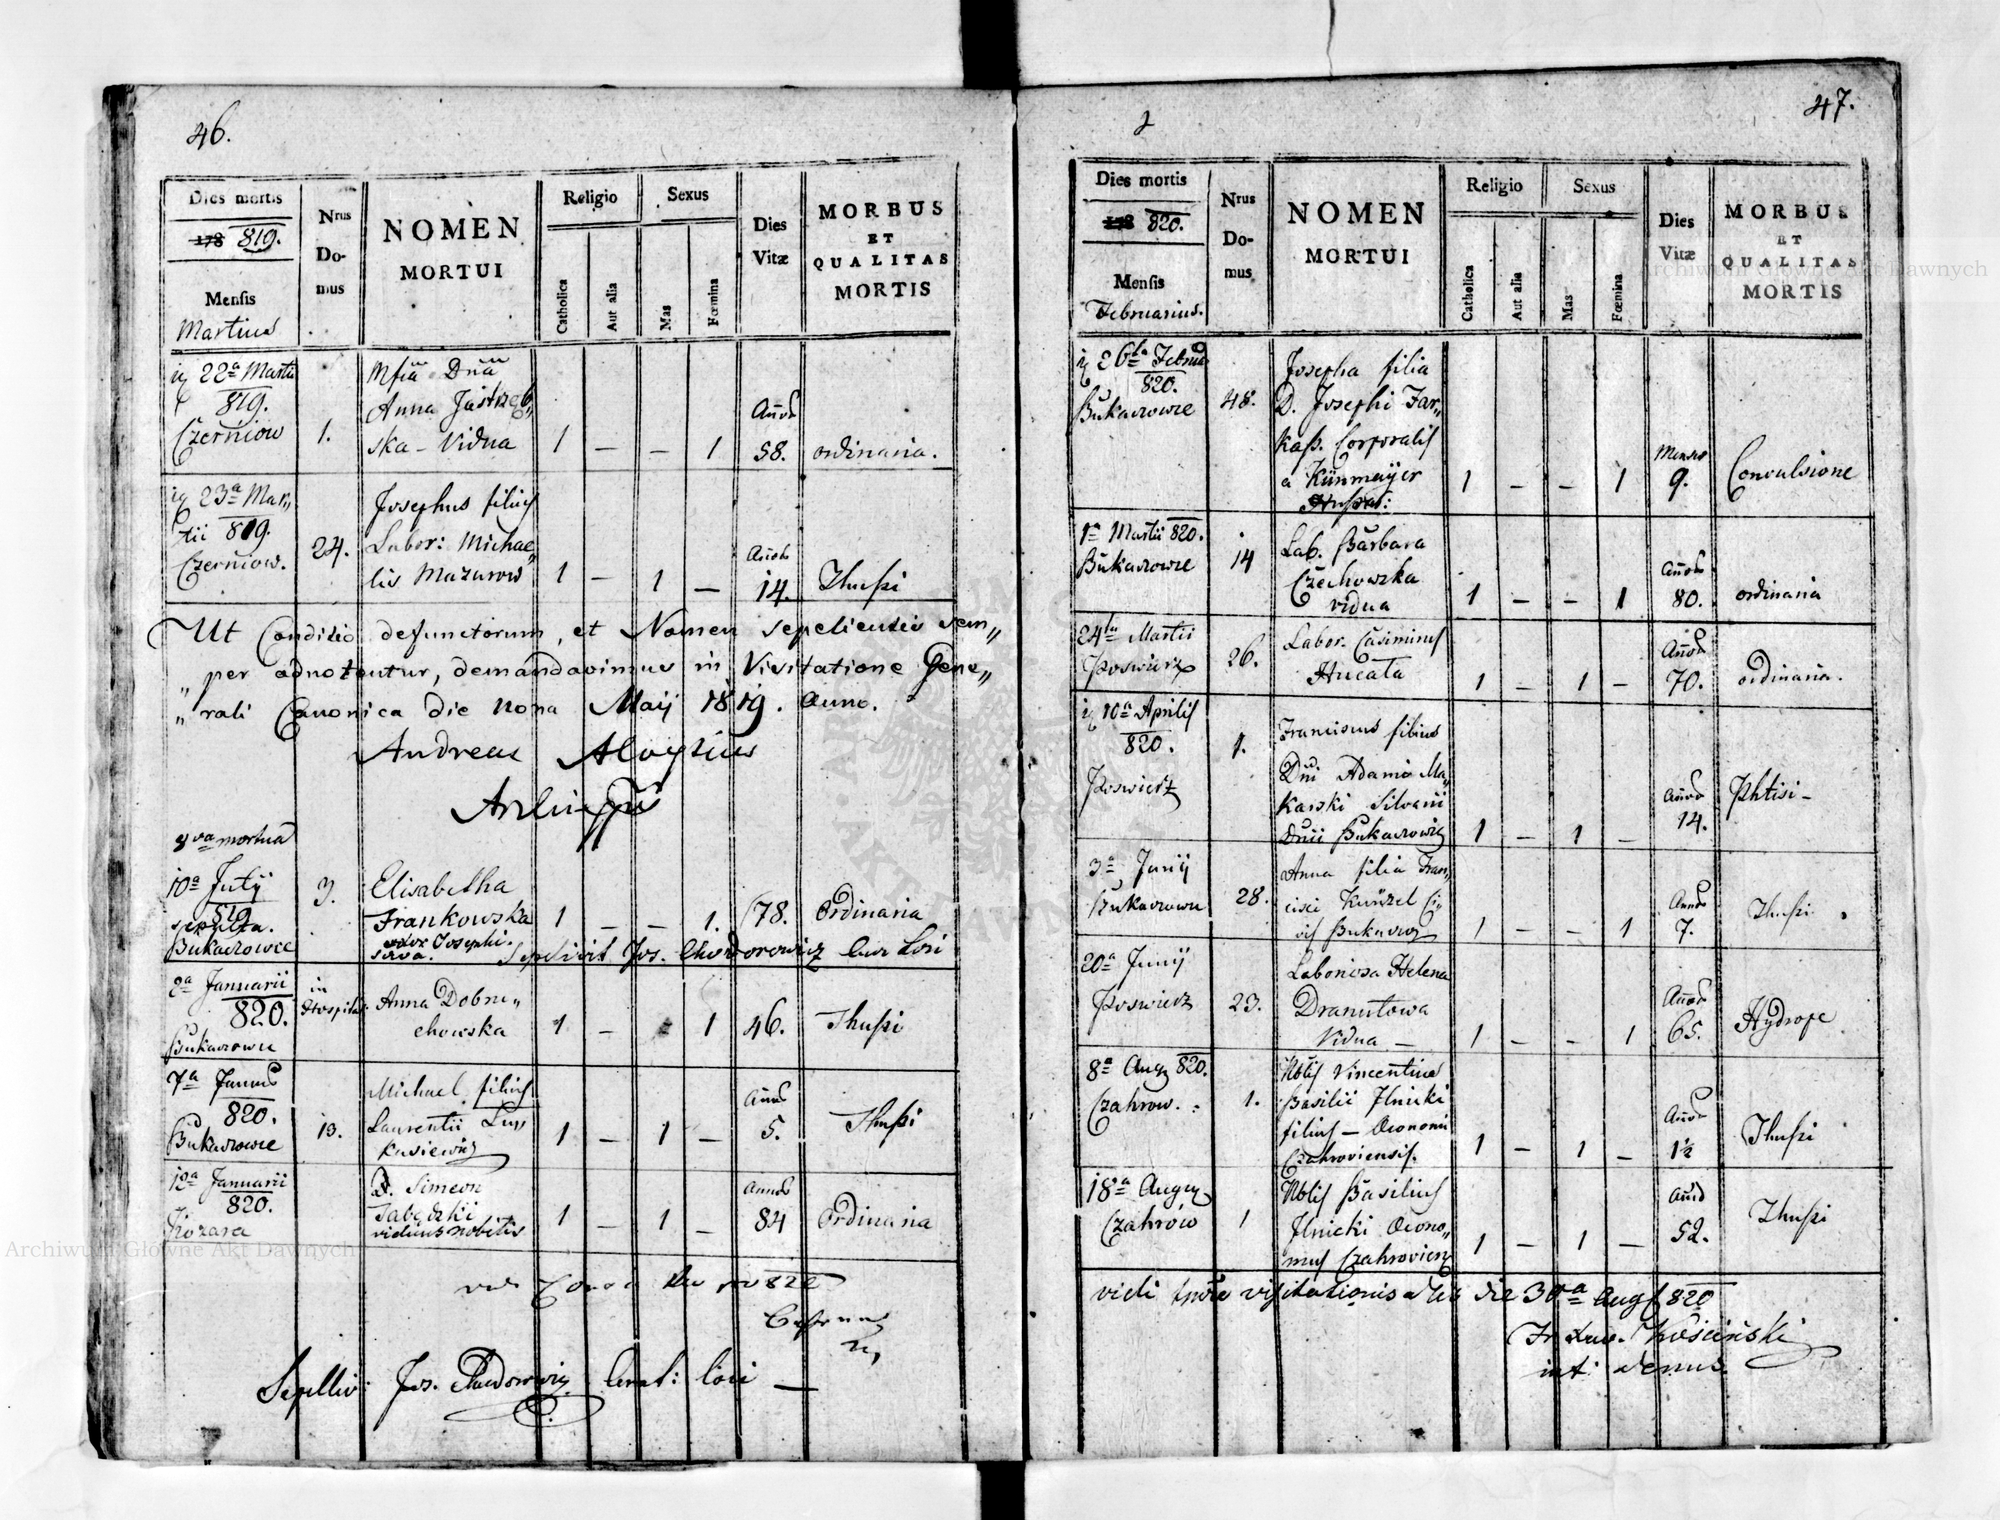 46.
Dies mortis
178 819.
Mensis
Martius
Nrus
Do-
mus
NOMEN
MORTUI
Religio
Catholica
Aut alia
Sexus
Mas
Fœmina
Dies
Vitæ
MORBUS
ET
QUALITAS
MORTIS
22a Martii
819.
Czerniow
1.
Dña
Anna Jastrzęb„
ska – Vidua
1 – – 1
Anńos
58.
ordinaria.
23a Mar„
tii 819.
Czerniow.
24.
Josephus filius
Labor: Michae„
lis Mazurow
1 – 1 –
14.
Thussi
Ut Conditio defunctorum, et Nomen sepelientis sem„
„per adnotentur, demandavimus in Visitatione Gene„
„rali Canonica die nona Maij 1819. Anno.
Andreas Aloysius
Archieppus
8va mortua
10a Julij
819
sepulta.
Bukaczowce
3.
Elisabetha
Frankowska
1 – – 1.
78.
Ordinaria
Sepelivit Jos. Chodorowicz Cur Loci
2a Januarii
820.
Bukaczowce
in
Hospital
Anna Dobru„
chowska
1 – 1
46.
Thussi
7a Januar
820.
Bukaczowce
13.
Michael filius
Laurentii Lu„
kasiewicz
1 – 1 –
5.
Thussi
12a Januarii
820.
Kozara
D. Simeon
viduus nobilis
1 – 1 –
Annos
84
Ordinaria
Sepelivi Jos. Chodorowicz Curat: loci –
2
47.
Dies mortis
178 820.
Mensis
Februarius.
Nrus
Do-
mus
NOMEN
MORTUI
Religio
Catholica
Aut alia
Sexus
Mas
Fœmina
Dies
Vitæ
MORBUS
ET
QUALITAS
MORTIS
26ta Febru
820.
Bukaczowce
48.
Josepha filia
D. Josephi Far„
kass. Corporalis
a Künmayer
1 – – 1
Menses
9.
Convulsione
1a Martii 820.
Bukaczowce
14
Lab. Barbara
Czechowska
vidua
1 – – 1
80.
ordinaria
24ta Martii
Poswierz
26.
Labor. Casimirus
Hucała
1 – 1 –
70.
ordinaria.
10a Aprilis
820.
Poswierz
1.
Franciscus filius
Dni Adami Ma„
karski Silvani
Dnii Bukaczowi
1 – 1 –
14.
Phtisi –
3a Junij
Bukaczowce
28.
Anna filia Fran„
cisci Künzel Ci„
vis Bukaczow
1 – – 1
Annos
7.
Thussi
20a Junij
Poswierz
23.
Laboriosa Helena
Dranutowa
Vidua –
1 – – 1
65.
Hydrope
8a Aug 820.
Czahrow.
1.
Nblis Vincentius
Basilii Ilnicki
filius – Oeconomi
Czahroviensis.
1 – 1 –
1½
Thussi
18a Aug
Czahrów
1
Nblis Basilius
Ilnicki Oecono„
mus Czahroviens
1 – 1 –
52.
Thussi
vidi visitationis die 30a Augs 820
Kościński
Archiwum Główne Akt Dawnych
Archiwum Główne Akt Dawnych